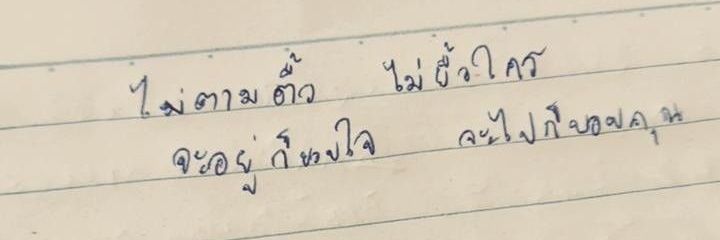 ไม่ตามตื๊อ ไม่ยื้อใคร
จะอยู่ก็ขอบใจ จะไปก็ขอบคุณ